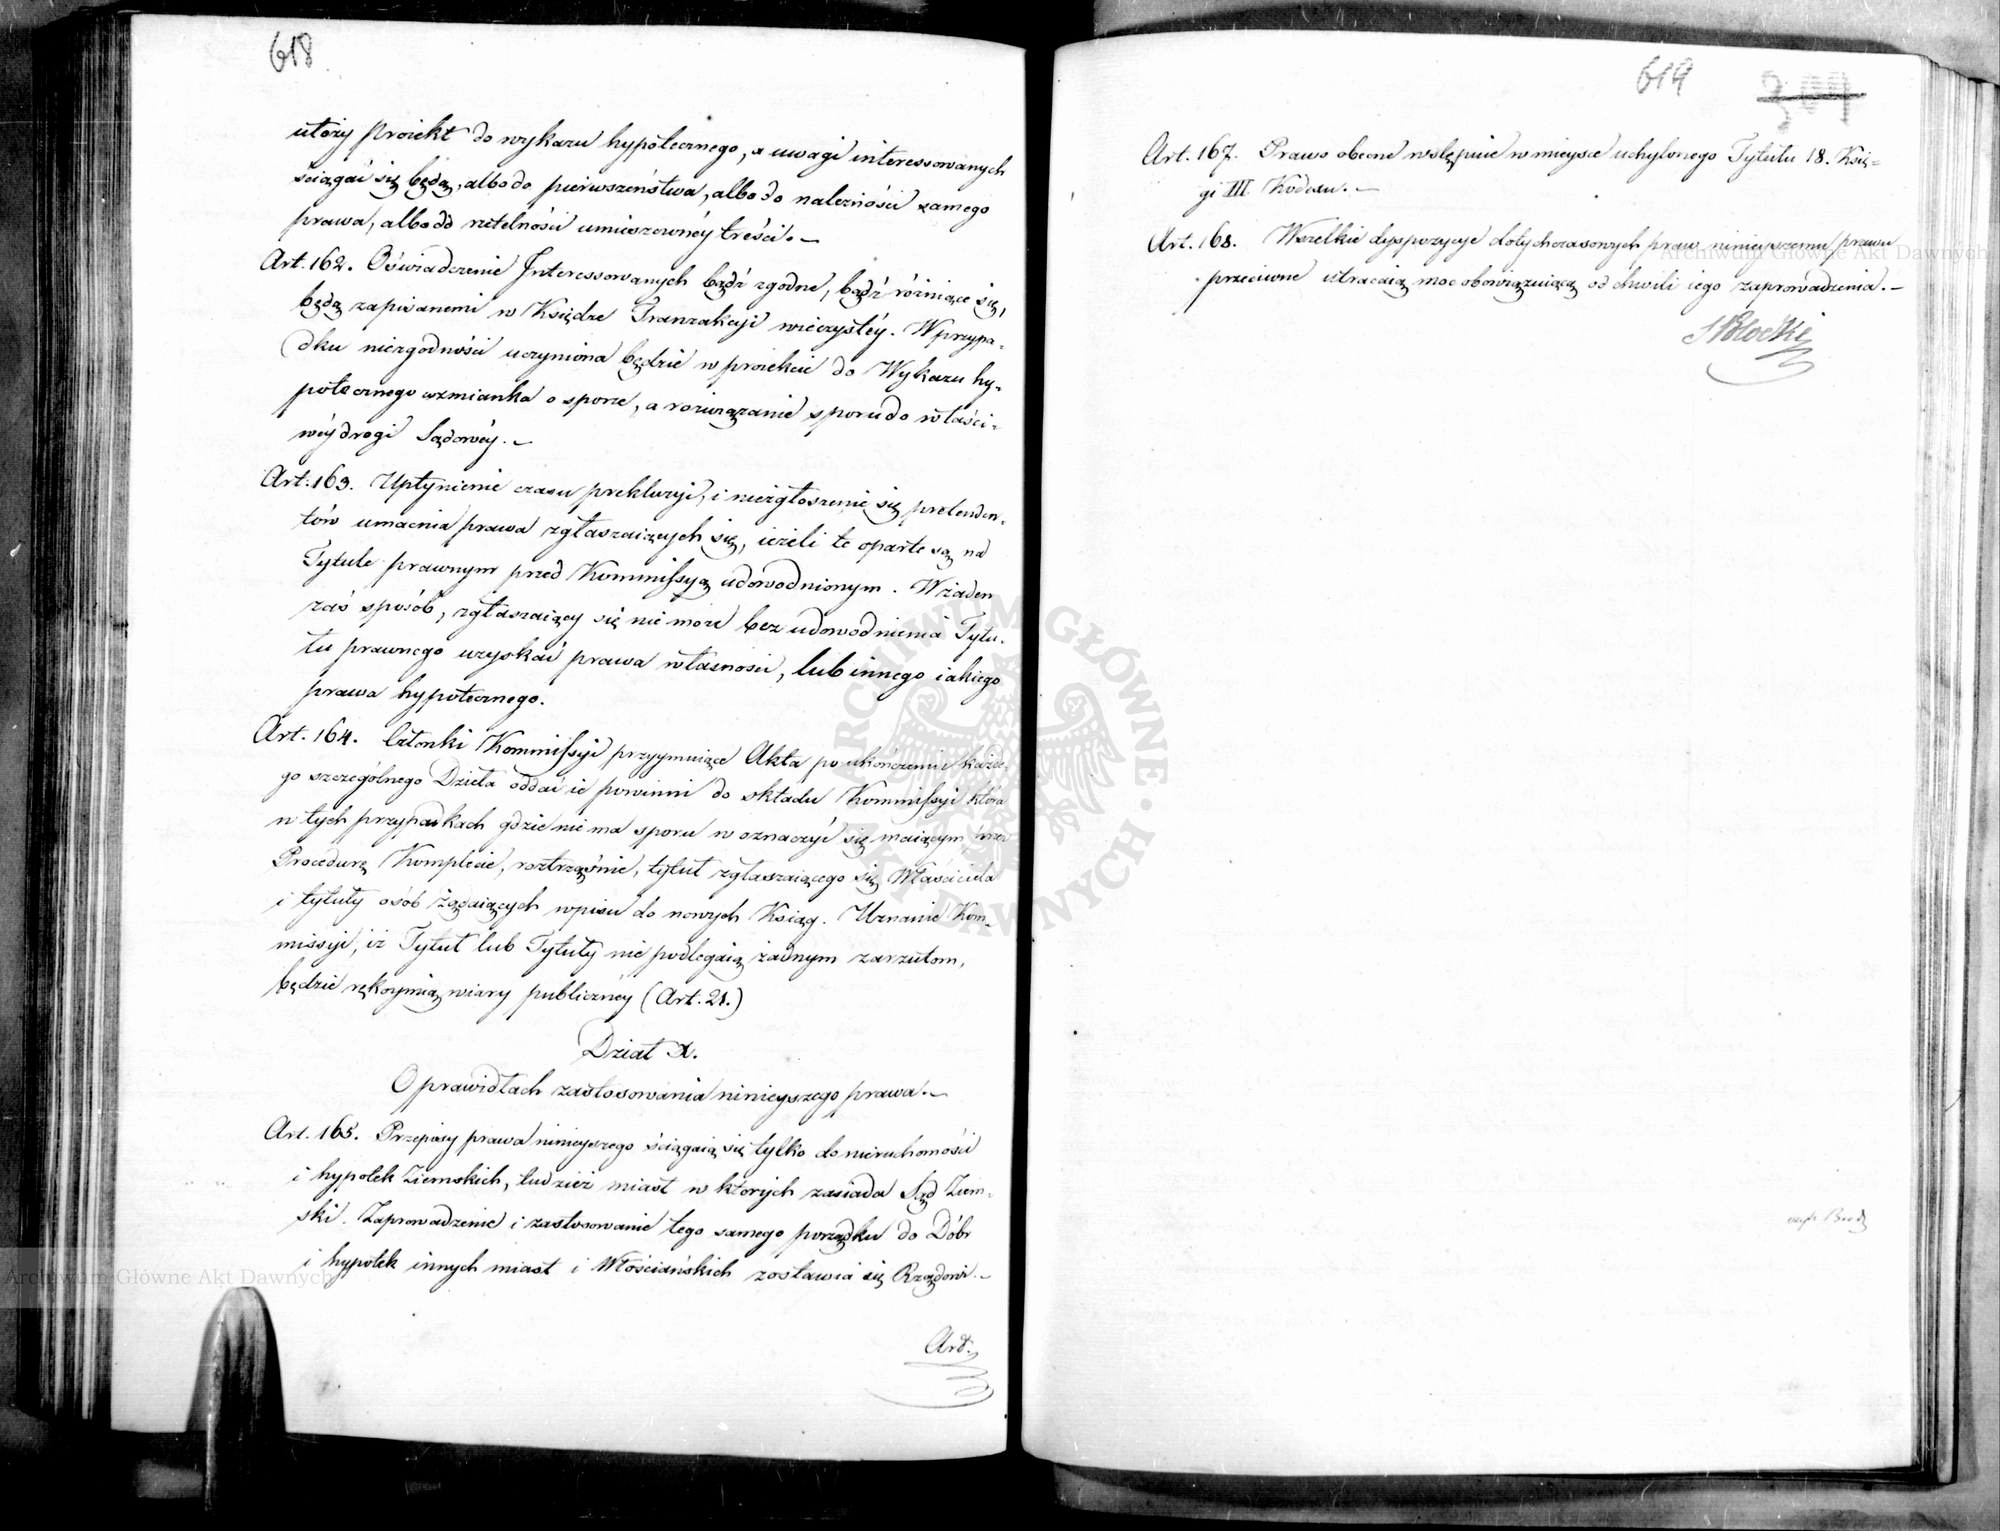 618
ułoży Proiekt do wykazu hypotecznego, a uwagi interessowanych
ściągać się będą, albo do pierwszeństwa, albo do należności samego
prawa, albo do rzetelności umieszczonéy treści. —
Art. 162. Oświadczenie Interessowanych bądź zgodne, bądź różniące się,
będą zapisanemi w Księdze Tranzakcyi wieczystéy. W przypa-
dku niezgodności uczyniona będzie w proiekcie do Wykazu hy-
potecznego wzmianka o sporze, a rozwiązanie sporu do właści-
wéy drogi Sądowéy. —
Art. 163. Upłynienie czasu prekluzyi, i niezgłoszenie się pretenden-
tów umacnia prawa zgłaszaiących się, ieżeli te oparte są na
Tytule prawnym przed Kommissyą udowodnionym. W żaden
zaś sposób, zgłaszaiący się nie może bez udowodnienia Tytu-
łu prawnego uzyskać prawa własności, lub innego iakiego
prawa hypotecznego.
Art. 164. Członki Kommissyi przyymuiące Akta po ukończeniu każde-
go szczególnego Dzieła oddać ie powinni do składu Kommissyi która
w tych przypadkach gdzie nie ma sporu w oznaczyć się maiącym, przez
Procedurę Komplecie, roztrząśnie, tytuł zgłaszaiącego się Właściciela
i tytuły osób żądaiących wpisu do nowych Ksiąg. Uznanie Kom-
missyi, iż Tytuł lub Tytuły nie podlegaią żadnym zarzutom,
będzie rękoymią wiary publicznéy (Art. 21.)
Dział X.
O prawidłach zastosowania ninieyszego prawa. —
Art. 165. Przepisy prawa ninieyszego ściągaią się tylko do nieruchomości
i hypotek Ziemskich, tudzież miast w których zasiada Sąd Ziem-
ski. Zaprowadzenie i zastosowanie tego samego porządku do Dóbr
i hypotek innych miast i Włościańskich zostawia się Rządowi. —
Art.
619
309
Art. 167. Prawo obecne wstępuie w mieysce uchylonego Tytułu 18. Księ-
gi III. Kodexu. —
Art. 168. Wszelkie dyspozycye dotychczasowych praw ninieyszemu prawu
przeciwne utracaią moc obowiązuiącą od chwili iego zaprowadzenia. —
Archiwum Główne Akt Dawnych
ARCHIWUM GŁÓWNE AKT DAWNYCH
Archiwum Główne Akt Dawnych